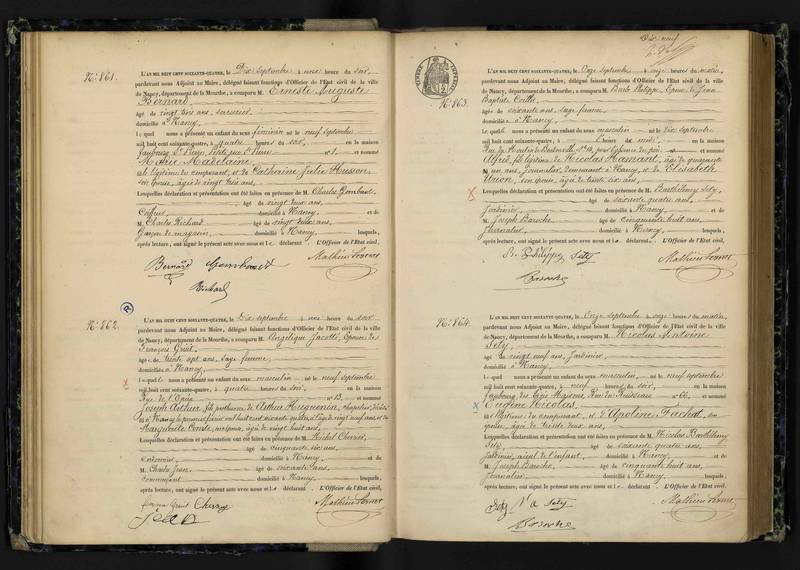 N°. 861.
L'AN MIL HUIT CENT SOIXANTE-QUATRE, le Dix septembre à onze heure du soir,
pardevant nous Adjoint au Maire, délégué faisant fonctions d'Officier de l'État civil de la ville
de Nancy, département de la Meurthe, a comparu M. Erneste Auguste
Bernard,
âgé de vingt trois ans, serrurier
domicilié à Nancy
lequel nous a présenté un enfant du sexe féminin né le neuf septembre
mil huit cent soixante-quatre, à quatre heures du soir, en la maison
faubourg St Pierre, N° 1 et nommé
Marie Madelaine,
fille légitime du comparant, et de Catherine Julie Husson
son épouse, âgée de vingt trois ans,
Lesquelles déclaration et présentation ont été faites en présence de M. Charles Gombaut
âgé de vingt deux ans,
Coiffeur domicilié à Nancy, et de
M. Charles Richard âgé de vingt deux ans,
garçon de magasin, domicilié à Nancy lesquels,
après lecture, ont signé le présent acte avec nous et le déclarant. L'Officier de l'État civil,
Bernard
Richard
N°. 862.
L'AN MIL HUIT CENT SOIXANTE-QUATRE, le Dix septembre à heure du soir
pardevant nous Adjoint au Maire, délégué faisant fonctions d'Officier de l'État civil de la ville
de Nancy, département de la Meurthe, a comparu M. Angélique Jacotté, Epouse de
François
âgée de trente sept ans, sage femme
domiciliée à Nancy
lequel nous a présenté un enfant du sexe masculin né le neuf septembre
mil huit cent soixante-quatre, à quatre heures du soir, en la maison
Rue de N° 13, et nommé
Joseph Arthur, fils posthume de Arthur Huguenin,
à Nancy
Marguerite âgée de vingt huit ans,
Lesquelles déclaration et présentation ont été faites en présence de M. Michel
âgé de cinquante six ans,
domicilié à Nancy et de
M. Charles Jean, âgé de soixante ans,
domicilié à Nancy lesquels,
après lecture, ont signé le présent acte avec nous et le déclarant. L'Officier de l'État civil,
Dix neuf
N°. 863.
L'AN MIL HUIT CENT SOIXANTE-QUATRE, le Onze septembre à onze heures du matin,
pardevant nous Adjoint au Maire, délégué faisant fonctions d'Officier de l'État civil de la ville
de Nancy, département de la Meurthe, a comparu M. Barbe Philippe, Epouse de Jean
Baptiste
âgée de soixante ans, sage femme
domicilié à Nancy
lequel nous a présenté un enfant du sexe masculin né le Dix septembre
mil huit cent soixante-quatre, à heures du en la maison
et nommé
Alfred, fils légitime de Nicolas Hannant, âgé de quarante
un ans, Journalier, demeurant à Nancy, et de Elisabeth
Union, son épouse, âgée de trente six ans,
Lesquelles déclaration et présentation ont été faites en présence de M. Barthélemy Sety,
âgé de soixante quatre ans,
Jardinier, domicilié à Nancy, et de
M. Joseph Baroche, âgé de cinquante huit ans,
Journalier, domicilié à Nancy, lesquels,
après lecture, ont signé le présent acte avec nous et la déclarante. L'Officier de l'État civil,
B. Philippe Sety
Baroche
N°. 864.
L'AN MIL HUIT CENT SOIXANTE-QUATRE, le Onze septembre à onze heures du matin,
pardevant nous Adjoint au Maire, délégué faisant fonctions d'Officier de l'État civil de la ville
de Nancy, département de la Meurthe, a comparu M. Nicolas Antoine
Sety,
âgé de vingt neuf ans, Jardinier,
domicilié à Nancy,
lequel nous a présenté un enfant du sexe masculin né le Dix septembre
mil huit cent soixante-quatre, à neuf heures du soir, en la maison
faubourg des Trois Maisons, Rue du Ruisseau N° 66, et nommé
Eugène Nicolas,
fils légitime du comparant, et d'Apoline Fachot, son
épouse, âgée de trente deux ans,
Lesquelles déclaration et présentation ont été faites en présence de M. Nicolas Barthélemy
Sety, âgé de soixante quatre ans,
Jardinier, aïeul de l'enfant, domicilié à Nancy, et de
M. Joseph Baroche, âgé de cinquante huit ans,
Journalier, domicilié à Nancy, lesquels,
après lecture, ont signé le présent acte avec nous et le déclarant. L'Officier de l'État civil,
Sety N A Sety
Baroche